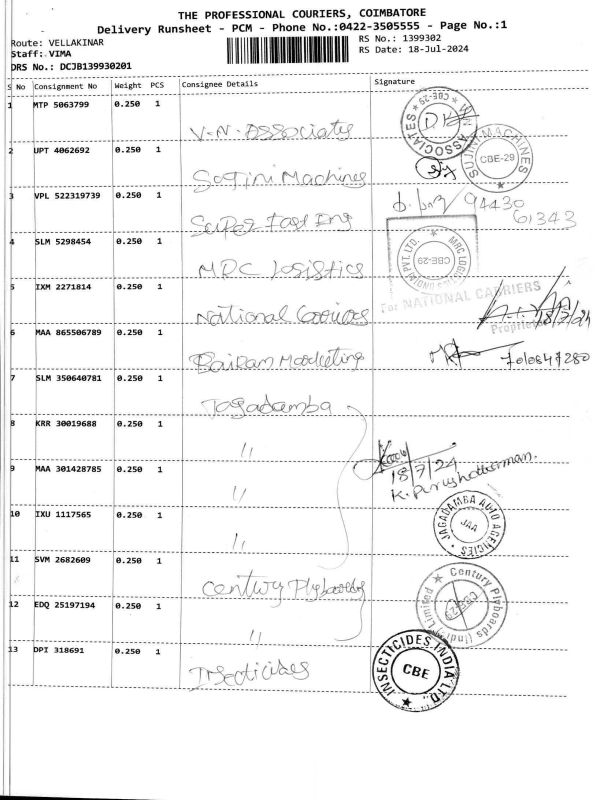 THE PROFESSIONAL COURIERS, COIMBATORE
Delivery Runsheet - PCM - Phone No.:0422-3505555 - Page No.:1
Route: VELLAKINAR
RS No.: 1399302
Staff: VIMA
RS Date: 18-Jul-2024
DRS No.: DCJB139930201
S No Consignment No Weight PCS Consignee Details Signature
1 MTP 5063799 0.250 1
V-N-Associats
ASSOCIATES CBE-29
2 UPT 4062692 0.250 1
Sujini Machines
SUJINI MACHINES CBE-29
3 VPL 522319739 0.250 1
Super Fast Eng
94430
61343
4 SLM 5298454 0.250 1
MRC Logistics
MRC LOGISTICS (INDIA) PVT. LTD. CBE-29
5 IXM 2271814 0.250 1
National Carriers
For NATIONAL CARRIERS
Proprietor
18/7/24
6 MAA 865506789 0.250 1
Bairam Marketing
7010847280
7 SLM 350640781 0.250 1
Jagadamba
8 KRR 30019688 0.250 1
"
18/7/24
K. Purushothaman.
9 MAA 301428785 0.250 1
"
10 IXU 1117565 0.250 1
"
JAGADAMBA AUTO AGENCIES JAA
11 SVM 2682609 0.250 1
Century Plyboards
Century Plyboards (India) Limited CBE-29
12 EDQ 25197194 0.250 1
"
13 DPI 318691 0.250 1
Insecticides
INSECTICIDES INDIA LTD. CBE